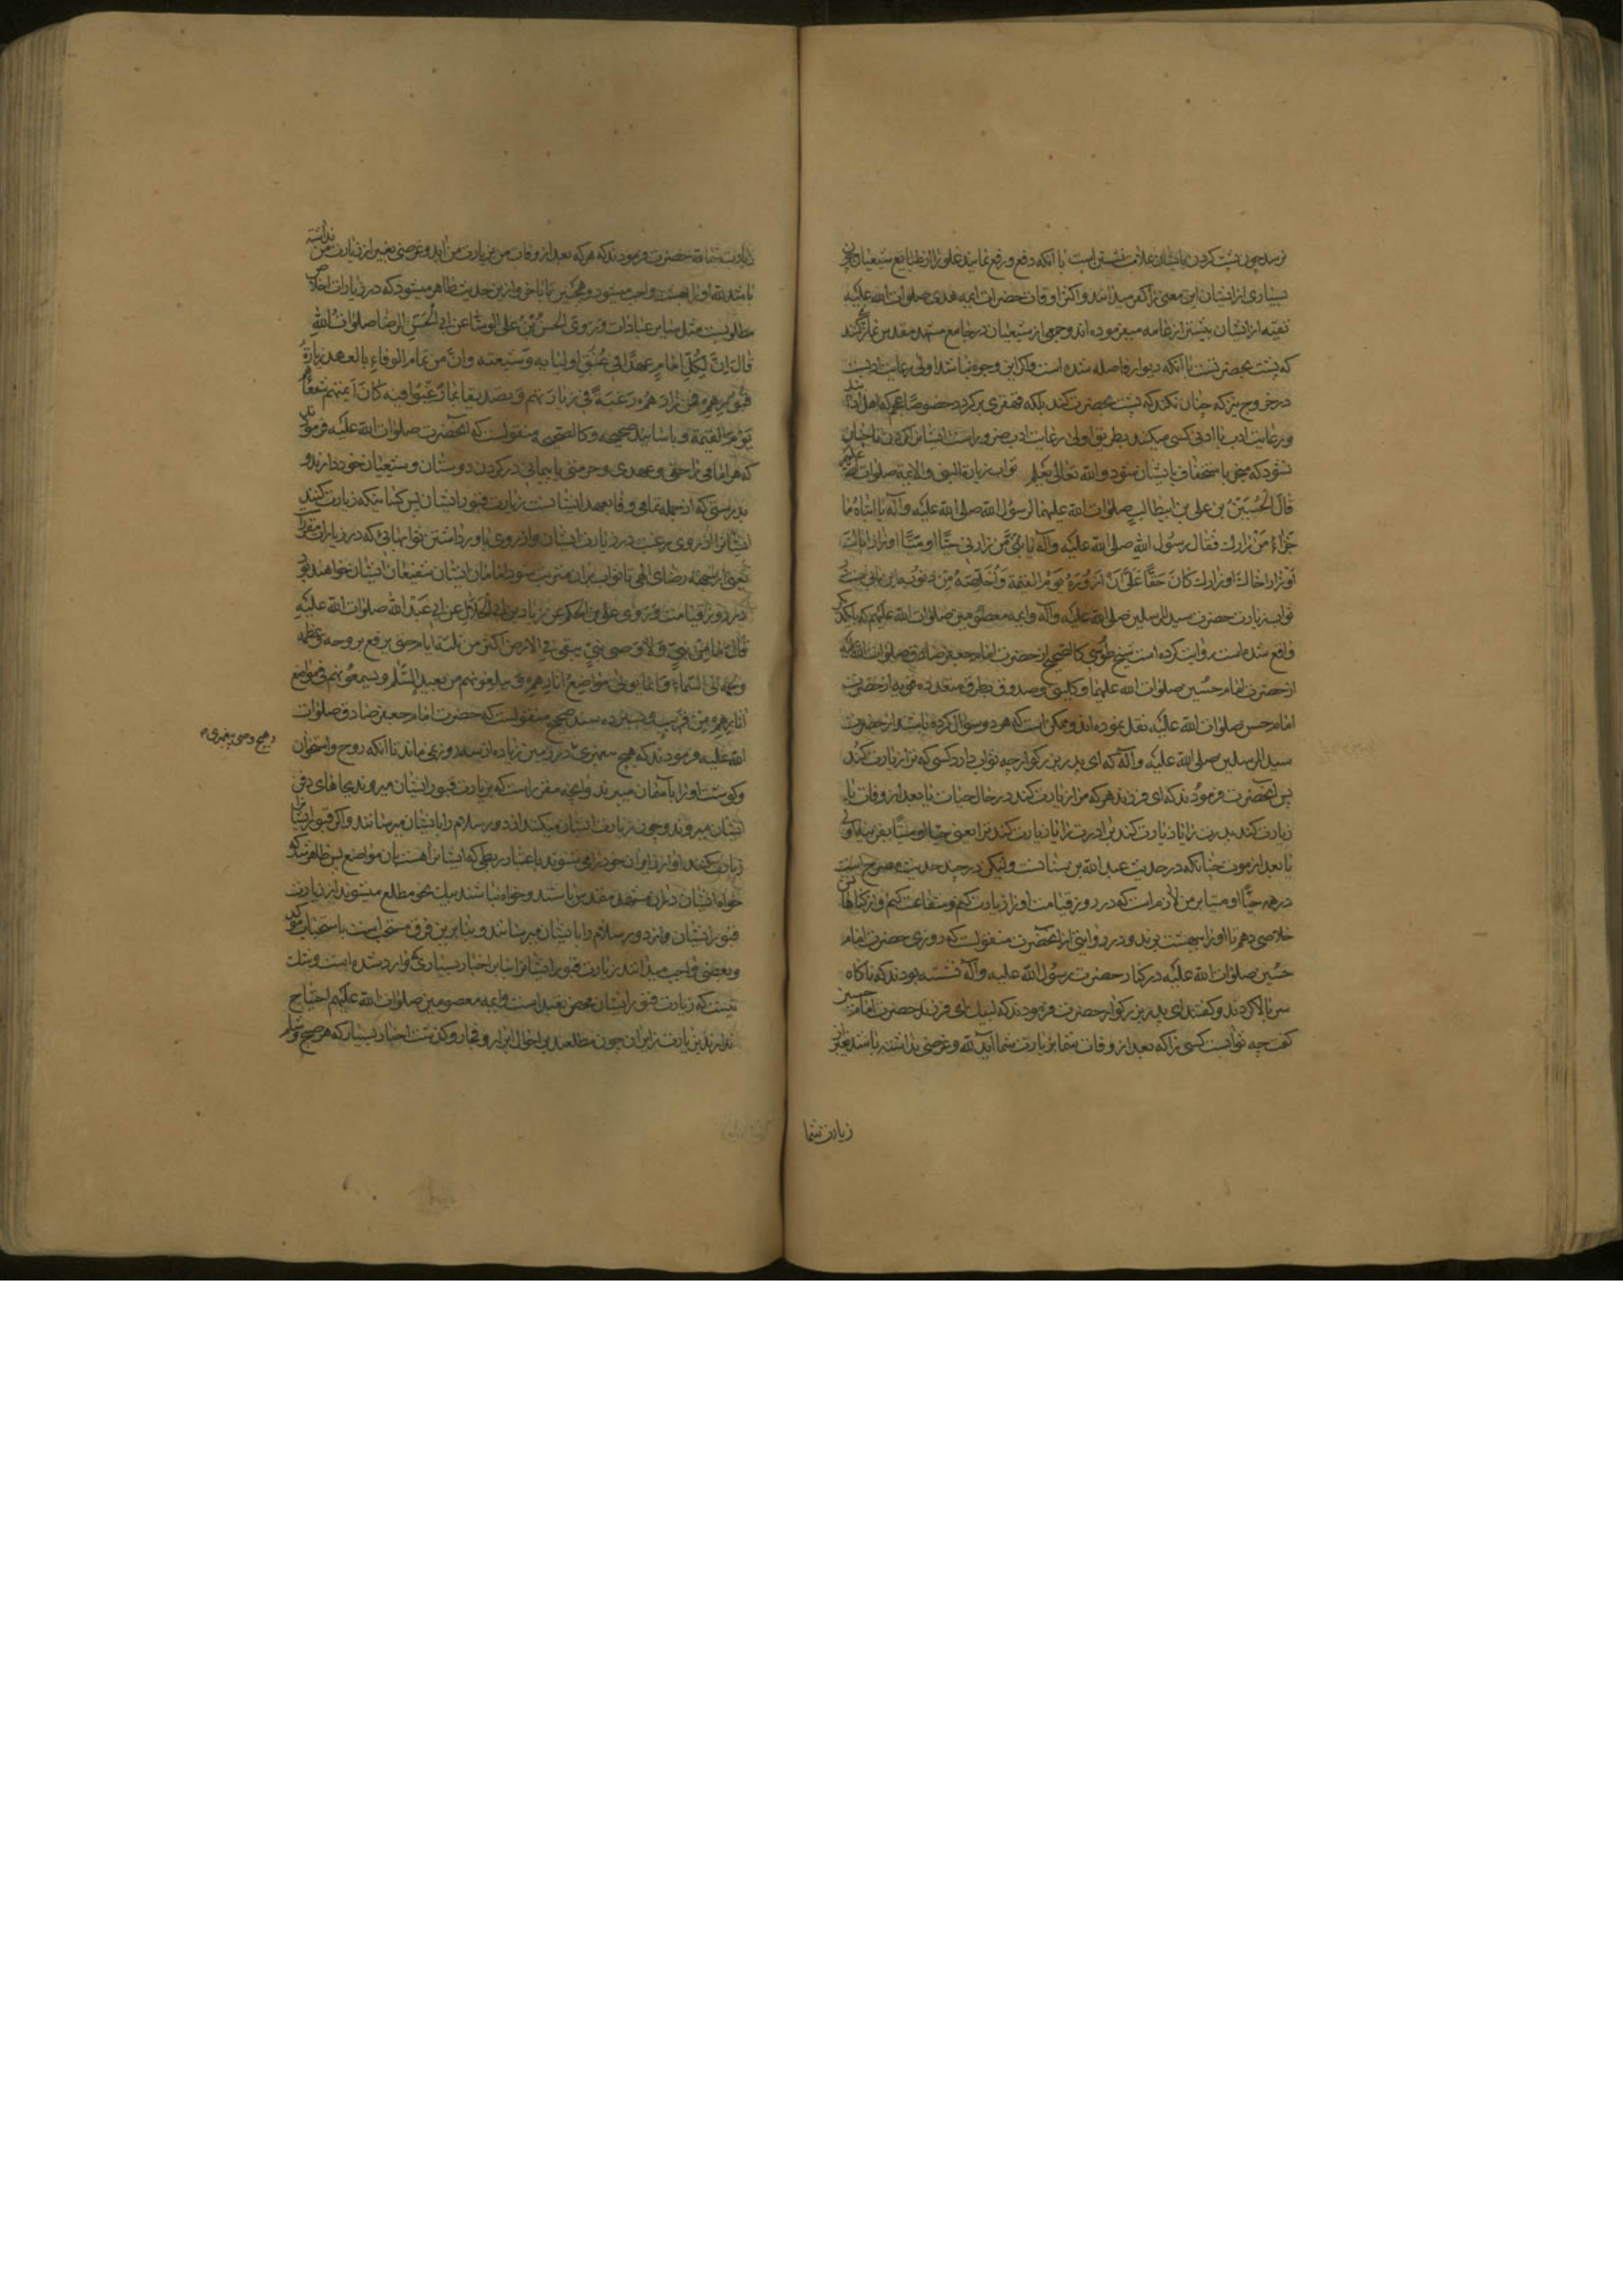 بسیاری از ایشان این معنی را کفر میدانند و اکثر اوقات حضرات ایمه هدی صلوات الله علیه
تقیه از ایشان بیشتر از عامه میفرموده‌اند و جمعی از شیعیان در جامع مشهد مقدس نماز کنند
که پشت بحضرتست با آنکه دیوار فاصله شده است و اگر این وجوه نباشد اولی رعایت ادبست
در خروج نیز که چنان نکند که پشت بحضرت کند بلکه قهقری برگردد خصوصا
و رعایت ادب با ادنی کسی میکنند بطریق اولی رعایت ادب ضرور است ایشانرا کردن تا چنان
نشود که منجر باستخفاف بایشان شود والله تعالی یعلم ثواب زیارة النبی والایمة صلوات الله علیهم
قال الحسین بن علی بن ابیطالب صلوات الله علیهما لرسول الله صلی الله علیه وآله یا ابتاه ما
جزاء من زارك فقال رسول الله صلی الله علیه وآله یا بنی من زارنی حیّا او میّتا او زار اباك
او زار اخاك او زارك كان حقّا علیّ ان ازوره یوم القیمة واخلّصه من ذنوبه
ثواب زیارت حضرت سید المرسلین صلی الله علیه وآله وایمه معصومین صلوات الله علیهم که بایکدیگر
واقع شده است روایت کرده است شیخ طوسی کالصحیح از حضرت امام جعفر صادق صلوات الله علیه که
از حضرت امام حسین صلوات الله علیهما و کلینی و صدوق بطرق متعدده قویه از حضرت
امام حسن صلوات الله علیه نقل نموده‌اند و ممکن است که هر دو سؤال کرده باشند از حضرت
سید المرسلین صلی الله علیه وآله که ای پدر بزرگوار چه ثواب دارد کسی که ترا زیارت کند
پس آنحضرت فرمودند که ای فرزند هر که مرا زیارت کند در حال حیات یا بعد از وفات یا
زیارت کند پدرت را یا زیارت کند برادرت را یا زیارت کند ترا یعنی حیّا و میّتا
یا بعد از موت چنانکه در حدیث عبدالله بن سنانست ولیکن در چند حدیث مصرح است
در همه حیّا و میّتا بر من لازم است که در روز قیامت او را زیارت کنم و شفاعت کنم و از گناهانش
خلاصی دهم تا او را ببهشت برند و در روایتی از آنحضرت منقولست که روزی حضرت امام
حسین صلوات الله علیه در کنار حضرت رسول الله علیه وآله نشسته بودند که ناگاه
سر بالا کردند و گفتند ای پدر بزرگوار حضرت فرمودند که لبیك ای فرزند حضرت امام حسین
گفت چه ثوابست کسی را که بعد از وفات شما بزیارت شما آید لله و غرضی نداشته باشد بغیر از
زیارت شما
زیارت شما حضرت فرمودند که هر که بعد از وفات من بزیارت من آید و غرضی بغیر از زیارت من نداشته
باشد لله او را بهشت واجب میشود و همچنین تا باخر و از این حدیث ظاهر میشود که در زیارات اخلاص
مطلوبست مثل سایر عبادات وروی الحسن بن علی الوشا عن ابی الحسن الرضا صلوات الله
قال ان لکل امام عهدا فی عنق اولیائه وشیعته وان من تمام الوفاء بالعهد زیارة
قبورهم فمن زارهم رغبة فی زیارتهم وتصدیقا بما رغبوا فیه كان ایمتهم شفعائهم
یوم القیمة و باسانید صحیحه و کالصحیح منقولست که آنحضرت صلوات الله علیه فرمودند
که هر امامی را حقی و عهدی و حرمتی یا پیمانی در گردن دوستان و شیعیان خود دارند و
بدرستی که از جمله تمامی وفا بعهد ایشانست زیارت قبور ایشان پس کسانیکه زیارت کنند
ایشانرا از روی رغبت در زیارت ایشان و از روی باور داشتن ثوابهائی که در زیارات مقرر است
یعنی از بجهة رضای الهی تا ثواب بران مترتب شود امامان ایشان شفیعان ایشان خواهند بود
در روز قیامت وروی علی بن الحکم عن زیاد بن ابی الحلال عن ابی عبد الله صلوات الله علیه
قال ما من نبی ولا وصی نبی یبقی فی الارض اکثر من ثلثة ایام حتی یرفع بروحه وعظمه
ولحمه الی السماء وانما یوتی مواضع آثارهم ویبلغونهم من بعید السلم ویسمعونهم فی مواضع
آثارهم من قریب و بسیزده سند صحیح منقولست که حضرت امام جعفر صادق صلوات
الله علیه فرمودند که هیچ پیغمبری در زمین زیاده از سه روز نمی‌ماند تا آنکه روح و استخوان
و هیچ وصی پیغمبری
و گوشت او را بآسمان میبرند و آنچه مقرر است که بزیارت قبور ایشان میروند بجاهای دفن
ایشان میروند و چون زیارت ایشان میکنند از دور سلام را بایشان میرسانند و اگر قبور ایشانرا
زیارت میکنند آواز زایران خود را می‌شنوند باعتبار ربطی که ایشانرا هست بآن مواضع پس ظاهر شد که
خواه ایشان در آن مشهد مقدس باشند و خواه نباشند بیك نحو مطلع میشوند از زیارت
قبور ایشان و از دور سلام را بایشان میرسانند و بنابرین فرق مستحب است باستحباب مؤکد
و بعضی واجب میدانند زیارت قبور ایشانرا بنابر اخبار بسیاری که وارد شده است و شك
نیست که زیارت قبور ایشان محض تعبد است و ایمه معصومین صلوات الله علیهم احتیاج
ندارند بزیارت زایران چون مطلعند بر احوال ابرار و فجار و گذشت اخبار بسیار که هر صبح و شام